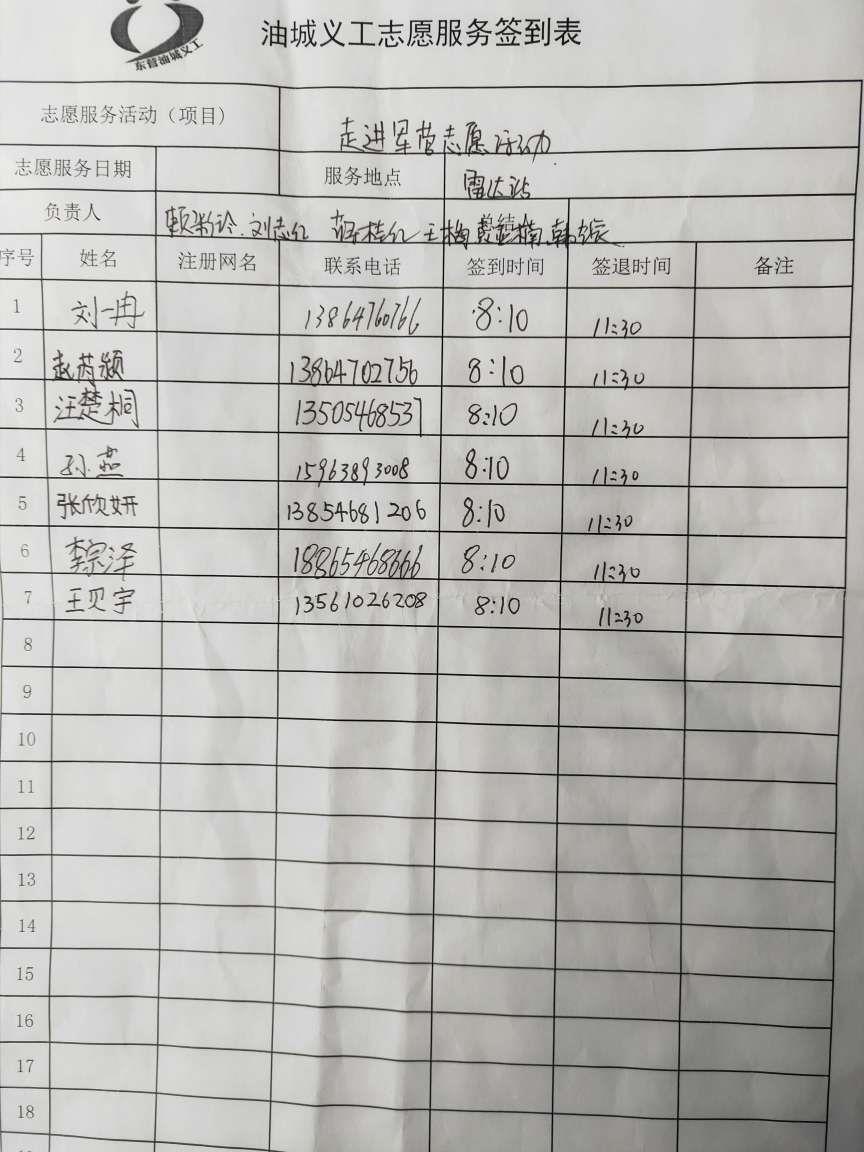 东营油城义工
油城义工志愿服务签到表
志愿服务活动（项目） 走进军营志愿活动
志愿服务日期 服务地点 雷达站
负责人 刘志红 王梅
序号 姓名 注册网名 联系电话 签到时间 签退时间 备注
1 刘一冉 13864760766 8:10 11:30
2 赵芮颍 13864702756 8:10 11:30
3 汪楚桐 13505468537 8:10 11:30
4 孙燕 15963893008 8:10 11:30
5 张欣妍 13854681206 8:10 11:30
6 李宗泽 18865468666 8:10 11:30
7 王贝宇 13561026208 8:10 11:30
8
9
10
11
12
13
14
15
16
17
18